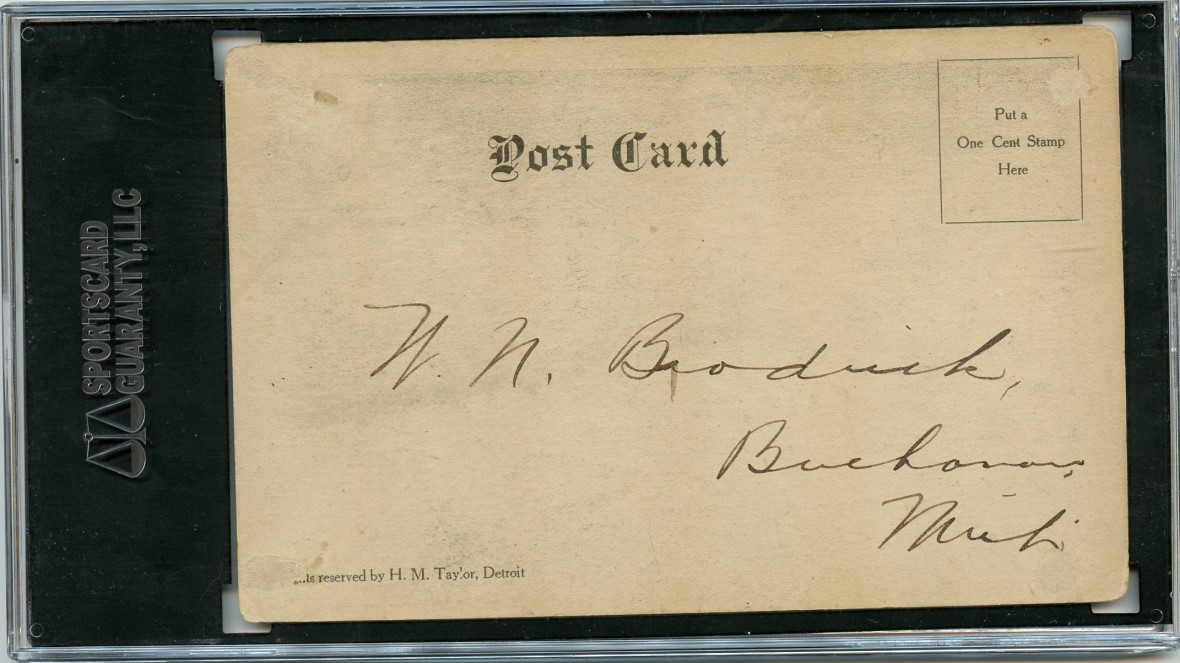 SPORTSCARD
GUARANTY, LLC
Post Card
Put a
One Cent Stamp
Here
W. N. Brodrick,
Buchanan,
Mich.
reserved by H. M. Taylor, Detroit